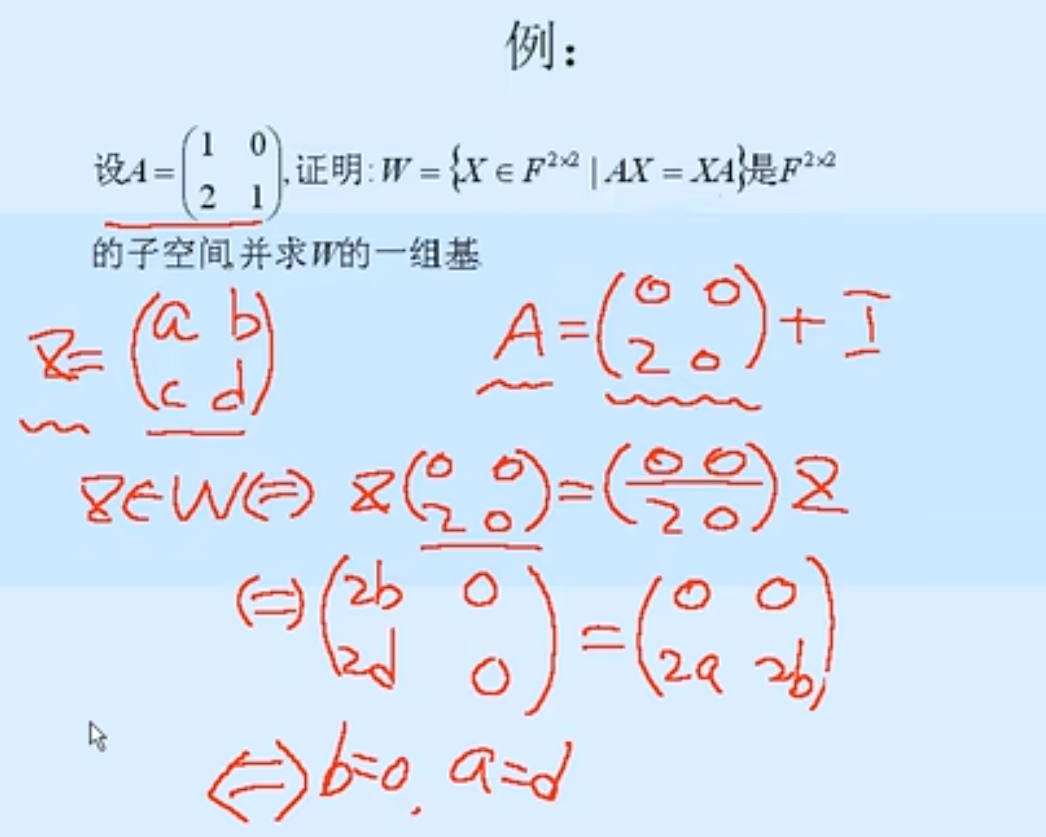 例：
设A=(1 0
2 1),证明:W={X∈F^{2×2}|AX=XA}是F^{2×2}
的子空间,并求W的一组基.
X=(a b
c d)
A=(0 0
2 0)+I
X∈W⇔X(0 0
2 0)=(0 0
2 0)X
⇔(2b 0
2d 0)=(0 0
2a 2b)
⇔b=0, a=d